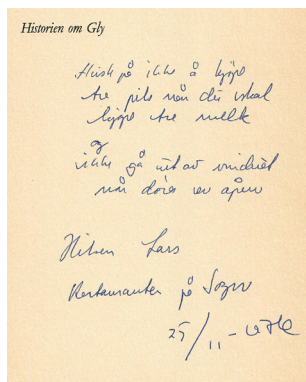 Historien om Gly
Husk på ikke å kjøpe
tre pils når du skal
kjøpe tre melk
og
ikke gå ut av vinduet
når døra er åpen
Hilsen Lars
Restauranten på Sogn
25/11-